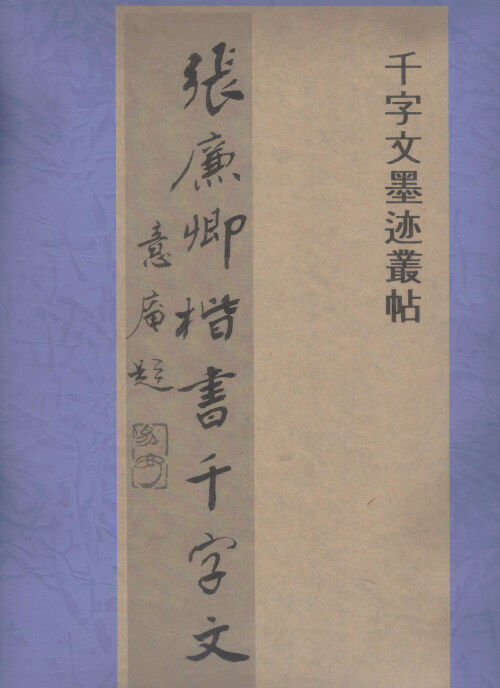 千字文墨迹叢帖
張廉卿楷書千字文
憙庵題